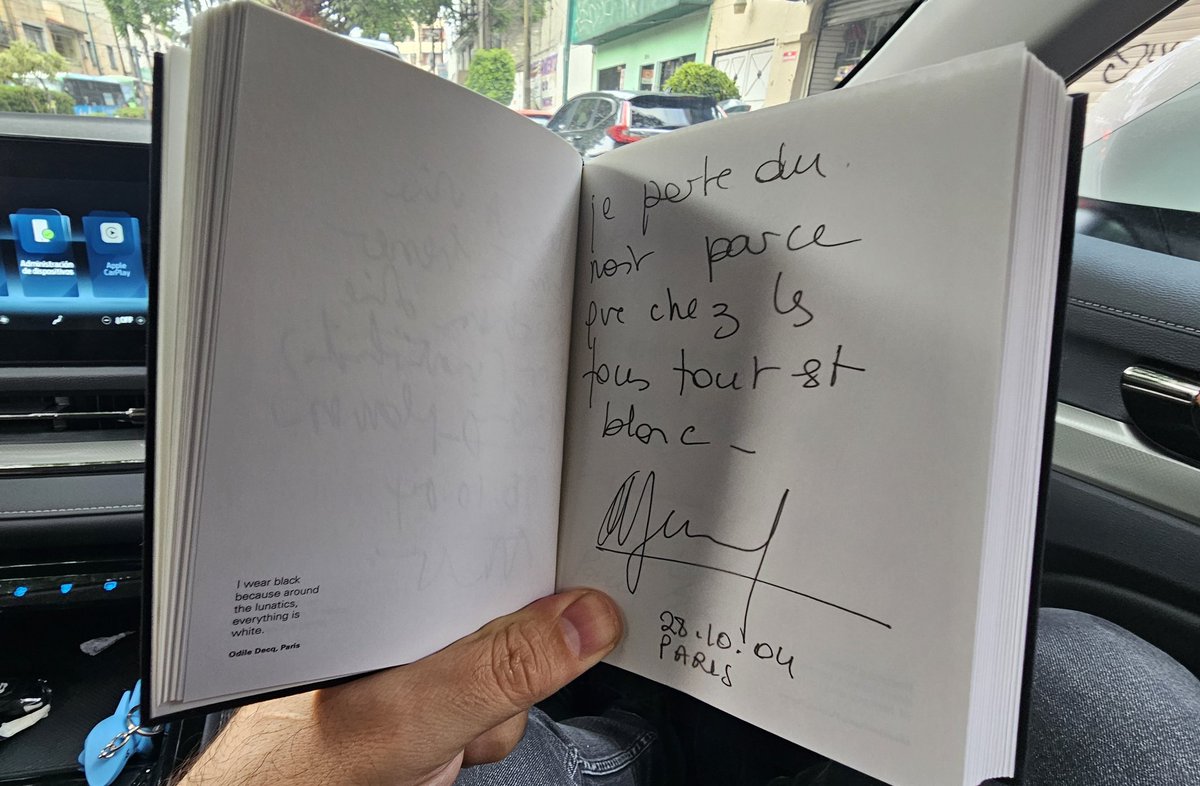 Administración
de dispositivos
Apple
CarPlay
I wear black
because around
the lunatics,
everything is
white.
Odile Decq, Paris
je porte du
noir parce
que chez les
fous tout est
blanc_
28.10.04
PARIS